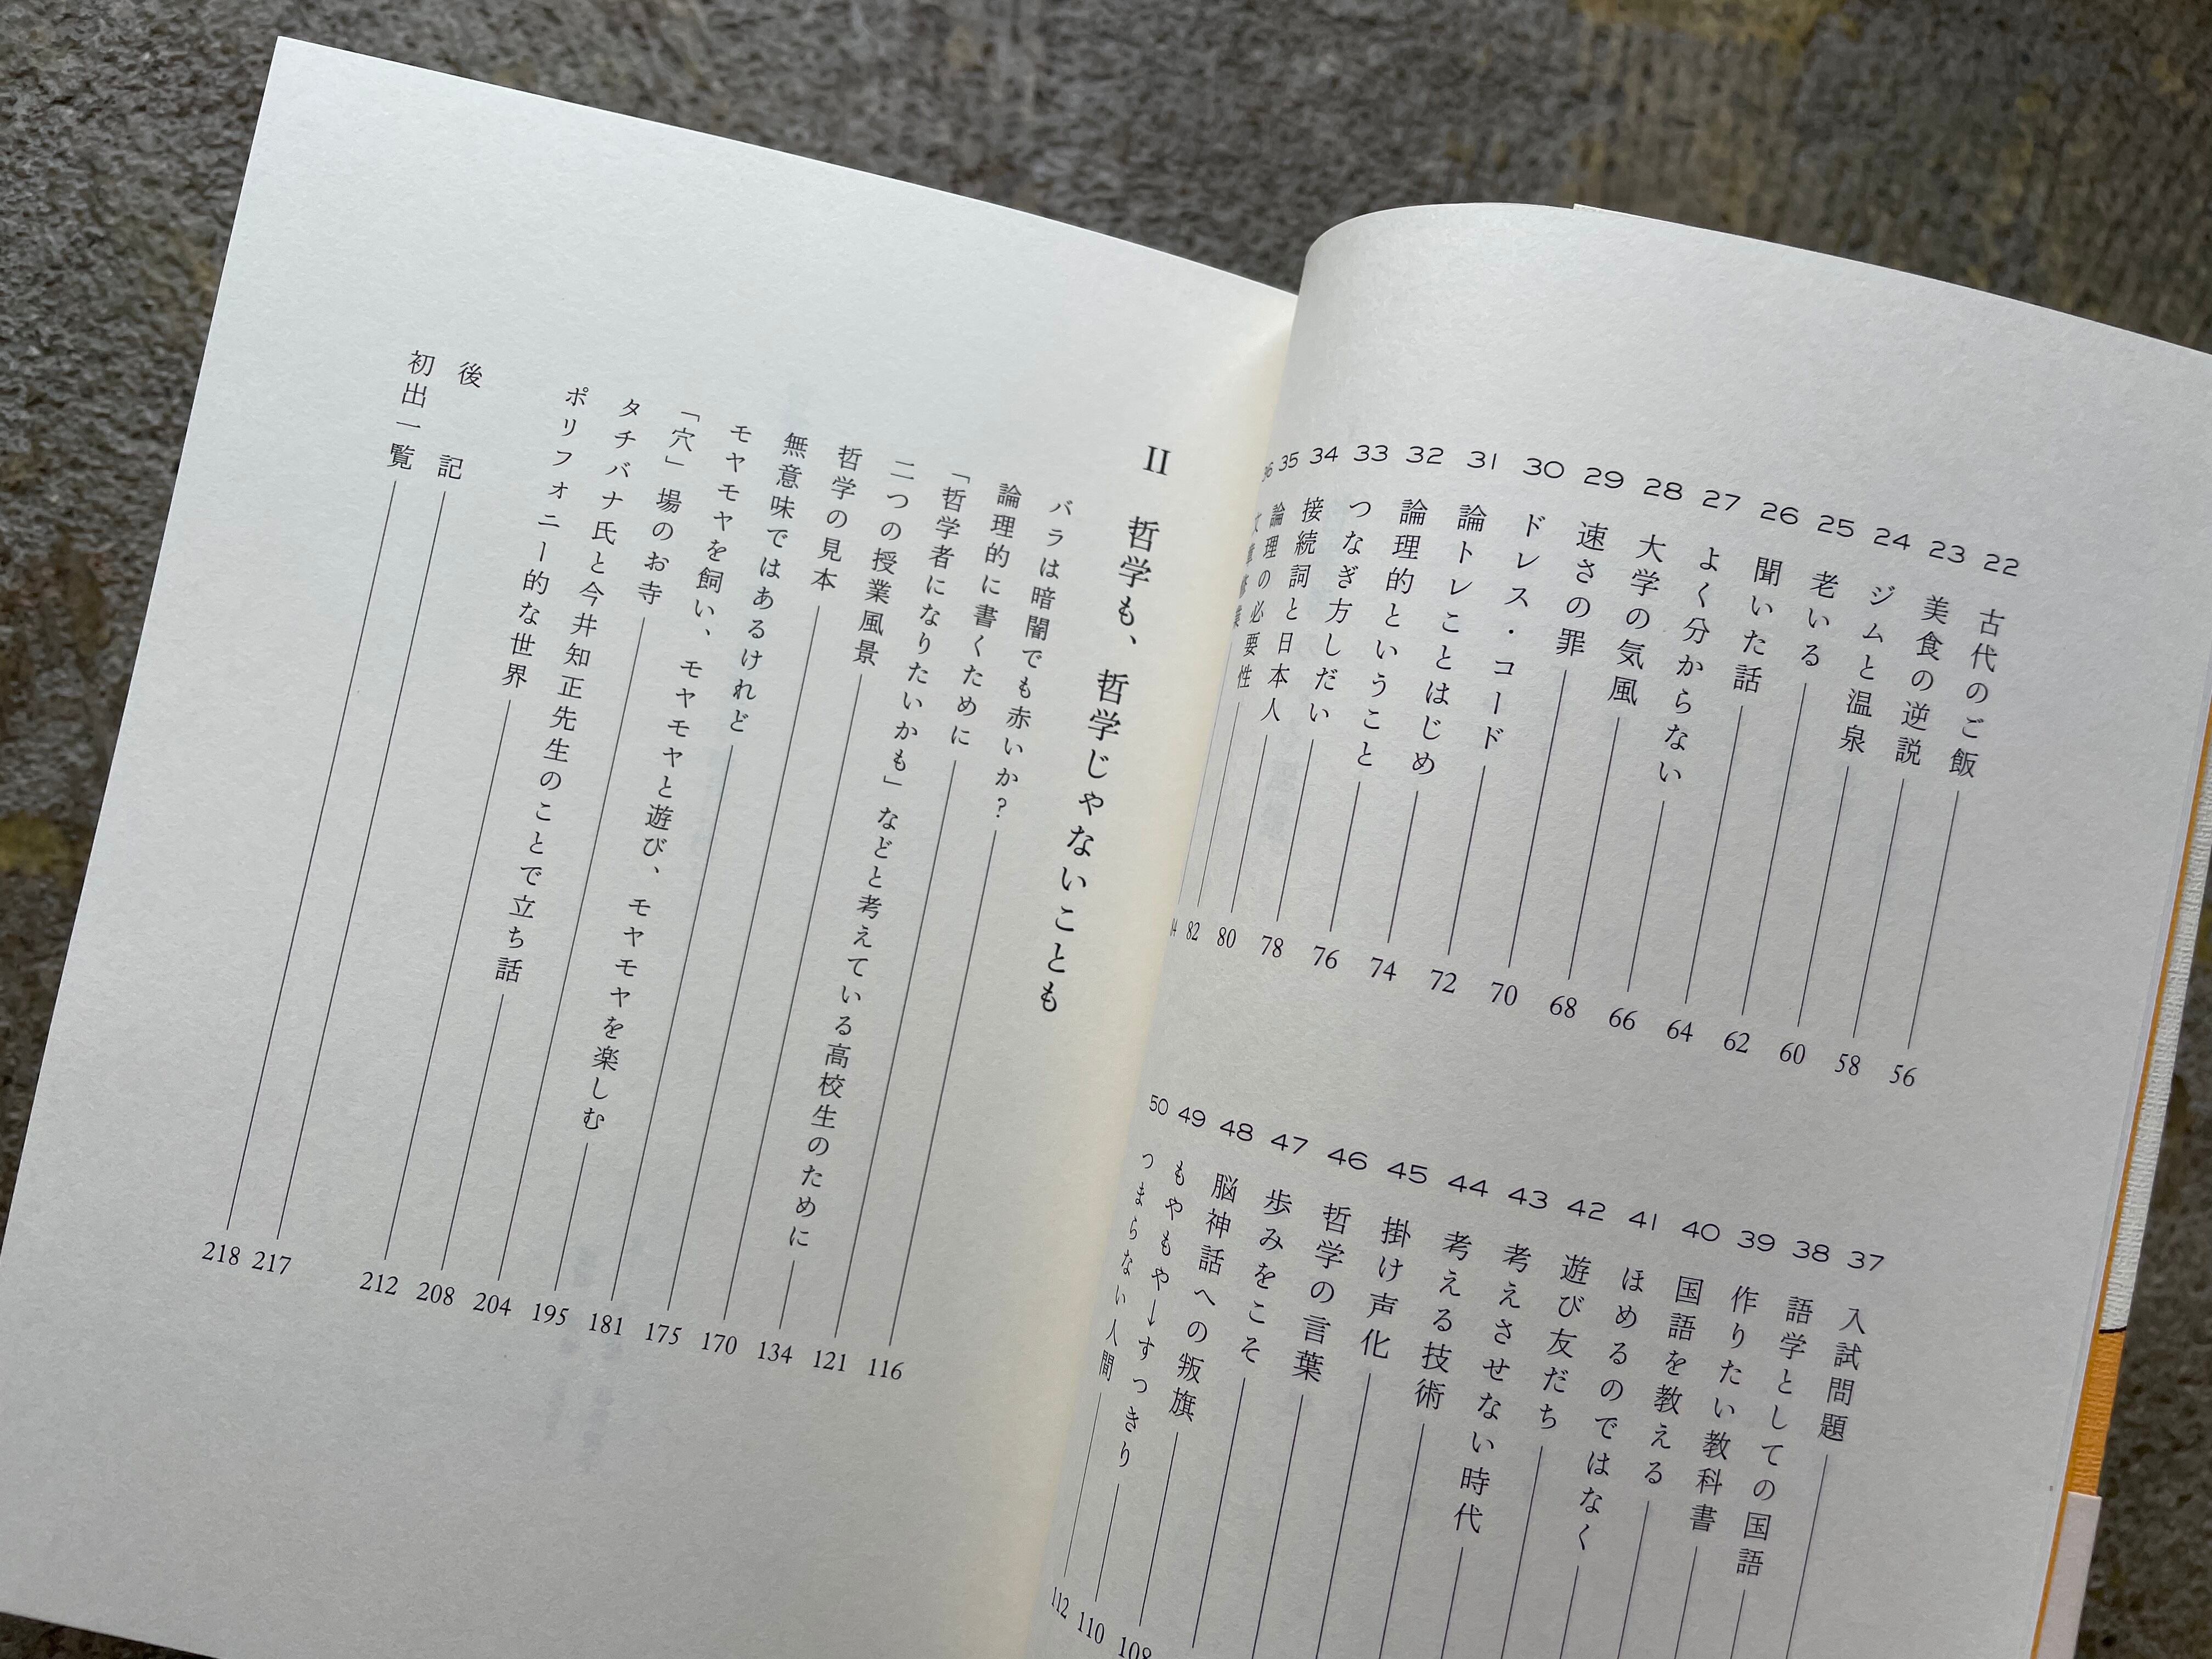 22 古代のご飯 56
23 美食の逆説 58
24 ジムと温泉 60
25 老いる 62
26 聞いた話 64
27 よく分からない 66
28 大学の気風 68
29 速さの罪 70
30 ドレス・コード 72
31 論トレことはじめ 74
32 論理的ということ 76
33 つなぎ方しだい 78
34 接続詞と日本人 80
35 論理の必要性 82
36 文章修業 84
37 入試問題
38 語学としての国語
39 作りたい教科書
40 国語を教える
41 ほめるのではなく
42 遊び友だち
43 考えさせない時代
44 考える技術
45 掛け声化
46 哲学の言葉
47 歩みをこそ
48 脳神話への叛旗 108
49 もやもや→すっきり 110
50 つまらない人間 112
II 哲学も、哲学じゃないことも
バラは暗闇でも赤いか? 116
論理的に書くために 121
「哲学者になりたいかも」などと考えている高校生のために 134
二つの授業風景 170
哲学の見本 175
無意味ではあるけれど 181
モヤモヤを飼い、モヤモヤと遊び、モヤモヤを楽しむ 195
「穴」場のお寺 204
タチバナ氏と今井知正先生のことで立ち話 208
ポリフォニー的な世界 212
後記 217
初出一覧 218